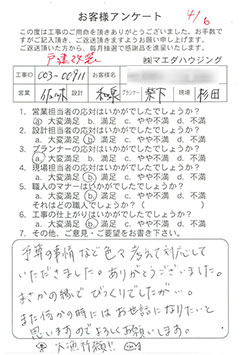 お客様アンケート
4/6
この度は工事のご用命を頂きありがとうございました。お手数で
すがご記入頂き、ご返送頂きますようお願い申し上げます。
ご返送頂いた方から、毎月抽選で感謝品を進呈いたします。
戸建改装 ㈱マエダハウジング
工事ID 003-00911 お客様名
営業 設計 プランナー 柴下 現場 杉田
1. 営業担当者の応対はいかがでしたでしょうか?
a. 大変満足 b. 満足 c. やや不満 d. 不満
2. 設計担当者の応対はいかがでしたでしょうか?
a. 大変満足 b. 満足 c. やや不満 d. 不満
3. プランナーの応対はいかがでしたでしょうか?
a. 大変満足 b. 満足 c. やや不満 d. 不満
4. 現場担当者の応対はいかがでしたでしょうか?
a. 大変満足 b. 満足 c. やや不満 d. 不満
5. 職人のマナーはいかがでしたでしょうか?
a. 大変満足 b. 満足 c. やや不満 d. 不満
それはどの職人でしょうか?( )
6. 工事の仕上がりはいかがでしたでしょうか?
a. 大変満足 b. 満足 c. やや不満 d. 不満
7. その他、ご意見・ご要望をお書き下さい。
事情など色々考えて対応して
いただきました。ありがとうございました。
まさかの縁でびっくりでしたが…。
また何かの時にはお世話になりたいと
思いますのでよろしくお願いします。